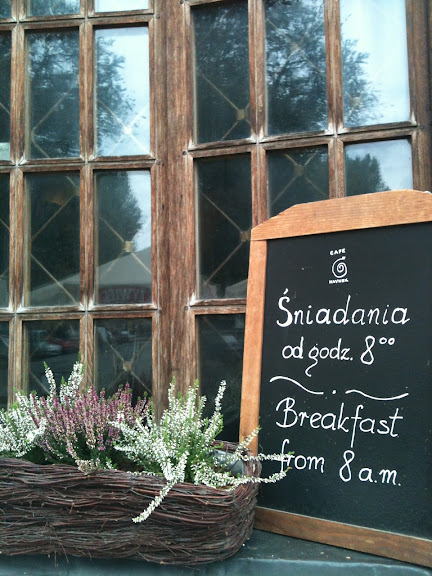 CAFE
Śniadania
od godz. 8⁰⁰
Breakfast
from 8 a.m.